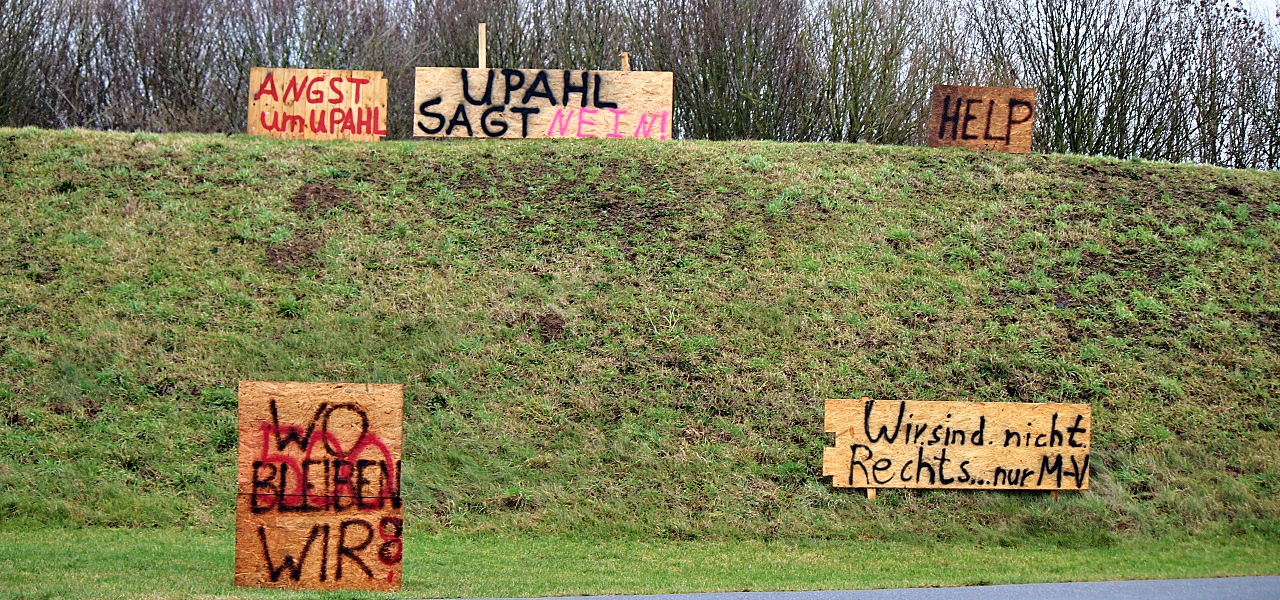 ANGST
um UPAHL
UPAHL
SAGT NEIN!
HELP
WO
BLEIBEN
WIR?
Wir.sind.nicht.
Rechts...nur M-V